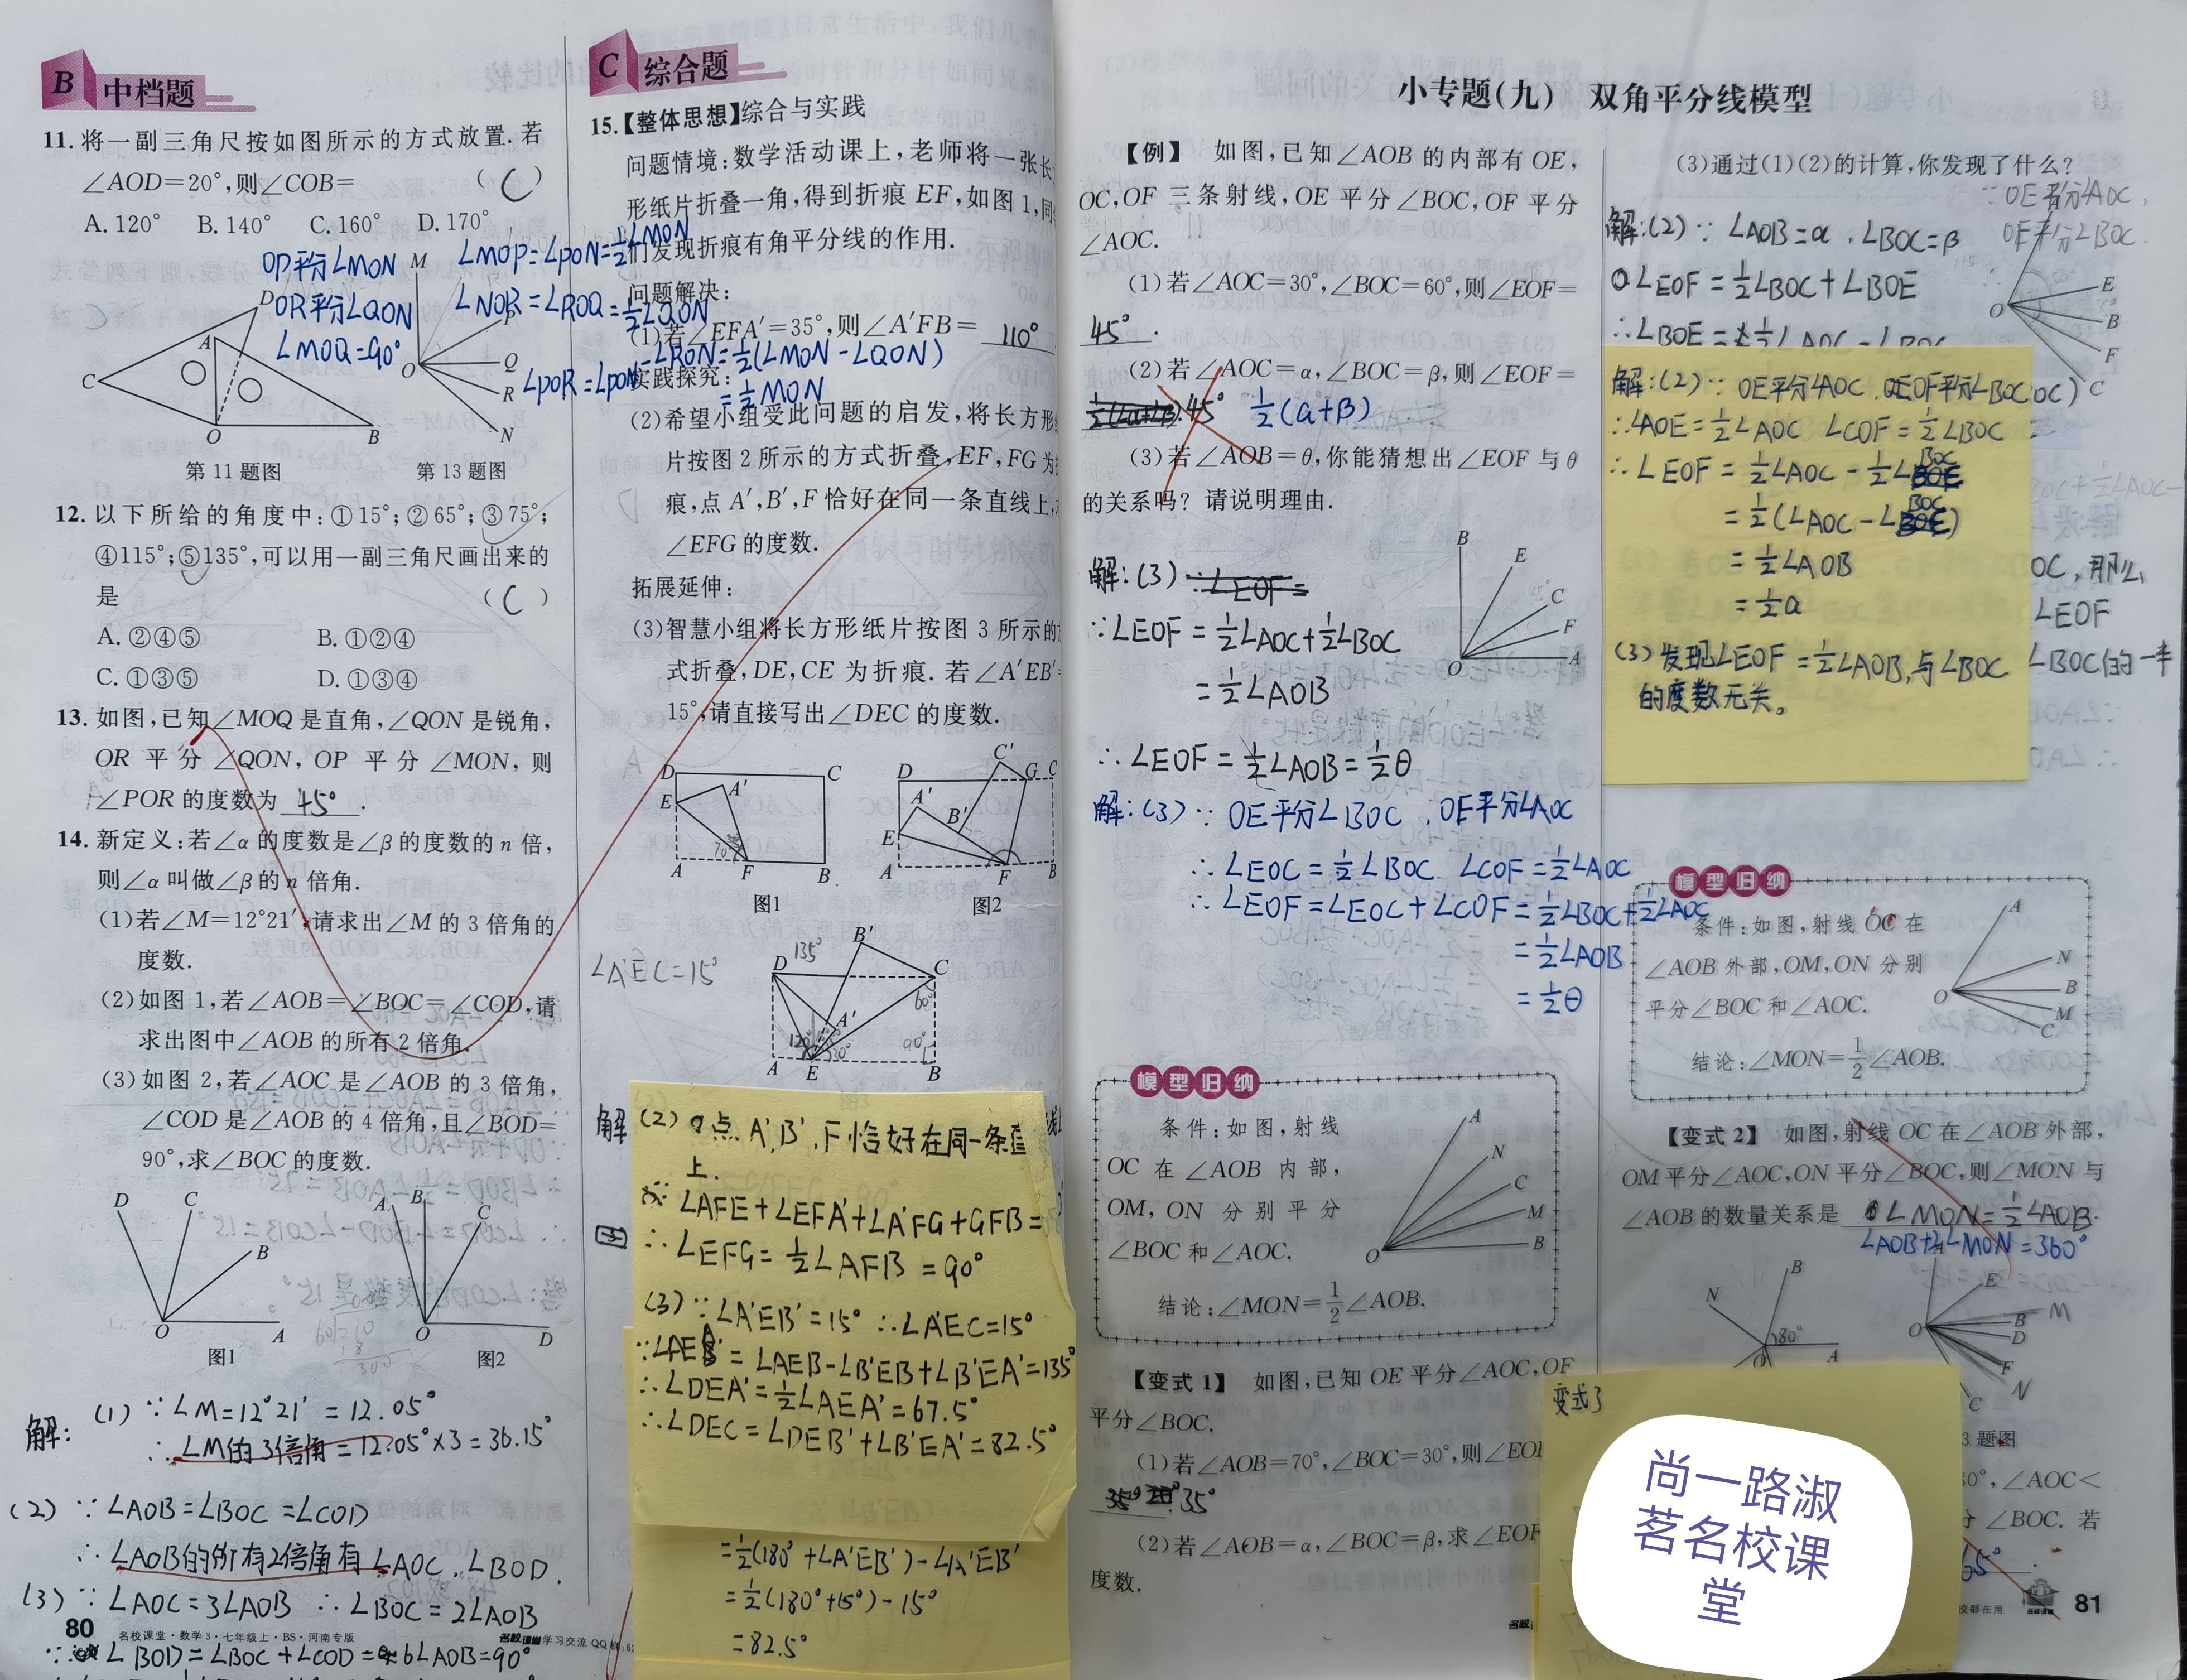 B 中档题
11. 将一副三角尺按如图所示的方式放置. 若
∠AOD=20°,则∠COB= ( C )
A. 120° B. 140° C. 160° D. 170°
OP平分∠MON
OR平分∠QON
∠MOQ=90°
∠MOP=∠PON=½∠MON
∠NOR=∠ROQ=½∠QON
∠POR=∠PON-∠RON=½(∠MON-∠QON)
=½MON
D
A
C
O
B
M
P
Q
R
O
N
第11题图
第13题图
12. 以下所给的角度中:①15°;②65°;③75°;
④115°;⑤135°,可以用一副三角尺画出来的
是 ( C )
A. ②④⑤ B. ①②④
C. ①③⑤ D. ①③④
13. 如图,已知∠MOQ是直角,∠QON是锐角,
OR 平分∠QON, OP 平分∠MON, 则
∠POR的度数为 45° .
14. 新定义:若∠α的度数是∠β的度数的n倍,
则∠α叫做∠β的n倍角.
(1)若∠M=12°21′,请求出∠M的3倍角的
度数.
(2)如图1,若∠AOB=∠BOC=∠COD,请
求出图中∠AOB的所有2倍角.
(3)如图2,若∠AOC是∠AOB的3倍角,
∠COD是∠AOB的4倍角,且∠BOD=
90°,求∠BOC的度数.
D C B O A
图1
A B C O D
图2
解: (1) ∵∠M=12°21′=12.05°
∴∠M的3倍角=12.05°×3=36.15°
(2) ∵∠AOB=∠BOC=∠COD
∴∠AOB的所有2倍角有∠AOC,∠BOD.
(3) ∵∠AOC=3∠AOB ∴∠BOC=2∠AOB
∠BOD=∠BOC+∠COD=6∠AOB=90°
80 名校课堂·数学3·七年级上·BS·河南专版
C 综合题
15.【整体思想】综合与实践
问题情境:数学活动课上,老师将一张长
形纸片折叠一角,得到折痕EF,如图1,同
们发现折痕有角平分线的作用.
问题解决:
(1)若∠EFA′=35°,则∠A′FB= 110°
实践探究:
(2)希望小组受此问题的启发,将长方形
片按图2所示的方式折叠,EF,FG为
痕,点A′,B′,F恰好在同一条直线上,
∠EFG的度数.
拓展延伸:
(3)智慧小组将长方形纸片按图3所示的
式折叠,DE,CE为折痕. 若∠A′EB′
15°,请直接写出∠DEC的度数.
D C A′ E A F B
70°
图1
D C′ G C A′ B′ E A F B
图2
∠A′EC=15°
135°
B′ D C A′ A E B
60°
90°
120°
30°
解 (2) 点A′,B′,F恰好在同一条直
上.
∵∠AFE+∠EFA′+∠A′FG+GFB=
∴∠EFG=½∠AFB=90°
(3)∵∠A′EB′=15° ∴∠A′EC=15°
=∠AEB-∠B′EB+∠B′EA′=135°
∴∠DEA′=½∠AEA′=67.5°
∴∠DEC=∠DEB′+∠B′EA′=82.5°
=½(180°+∠A′EB′)-∠A′EB′
=½(180°+15°)-15°
=82.5°
学习交流QQ
小专题(九) 双角平分线模型
【例】 如图,已知∠AOB的内部有OE,
OC,OF 三条射线,OE平分∠BOC,OF平分
∠AOC.
(1)若∠AOC=30°,∠BOC=60°,则∠EOF=
45° .
(2)若∠AOC=α,∠BOC=β,则∠EOF=
45° ½(α+β)
(3)若∠AOB=θ,你能猜想出∠EOF与θ
的关系吗?请说明理由.
解:(3) ∵∠EOF=
∵∠EOF=½∠AOC+½∠BOC
=½∠AOB
∴∠EOF=½∠AOB=½θ
B E C F O A
解:(3)∵OE平分∠BOC,OF平分∠AOC
∴∠EOC=½∠BOC ∠COF=½∠AOC
∴∠EOF=∠EOC+∠COF=½∠BOC+½∠AOC
=½∠AOB
=½θ
模型归纳
条件:如图,射线
OC 在 ∠AOB 内部,
OM, ON 分别平分
∠BOC和∠AOC.
结论:∠MON=½∠AOB.
A N C M B O
【变式1】 如图,已知OE平分∠AOC,OF
平分∠BOC.
(1)若∠AOB=70°,∠BOC=30°,则∠EO
35°
(2)若∠AOB=α,∠BOC=β,求∠EOF
度数.
(3)通过(1)(2)的计算,你发现了什么?
∵OE平分∠AOC,
OF平分∠BOC.
解:(2)∵∠AOB=α,∠BOC=β
∠EOF=½∠BOC+∠BOE
E B F C O
解:(2)∵OE平分∠AOC,OF平分∠BOC
∴∠AOE=½∠AOC ∠COF=½∠BOC
∴∠EOF=½∠AOC-½∠BOC
=½(∠AOC-∠BOC)
=½∠AOB
=½α
(3)发现∠EOF=½∠AOB,与∠BOC
的度数无关。
OC,那么
∠EOF
∠BOC的一半
模型归纳
条件:如图,射线OC在
∠AOB外部,OM,ON分别
平分∠BOC和∠AOC.
结论:∠MON=½∠AOB.
A N B M C O
【变式2】 如图,射线OC在∠AOB外部,
OM平分∠AOC,ON平分∠BOC,则∠MON与
∠AOB的数量关系是 ∠MON=½∠AOB.
∠AOB+2∠MON=360°
N B O A
80°
E B M D F N C O
变式3
3题图
∠AOC<
∠BOC. 若
65°
尚一路淑
茗名校课
堂
校都在用 名校课堂 81